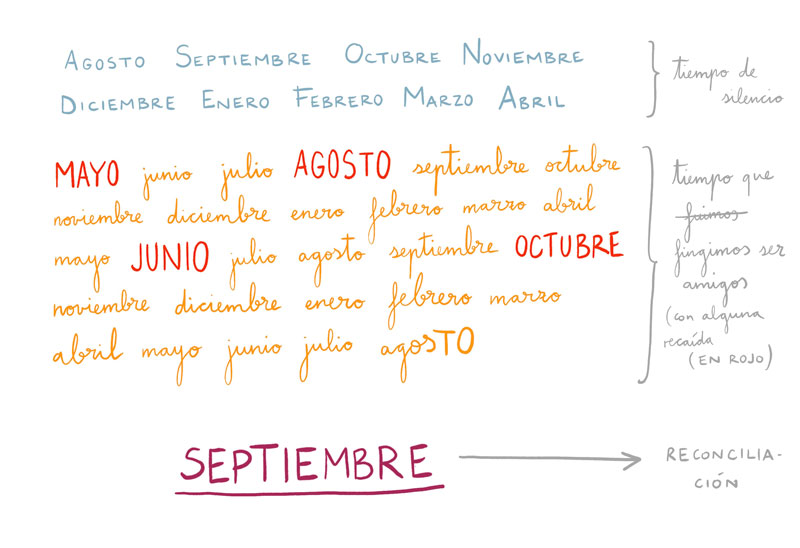 AGOSTO SEPTIEMBRE OCTUBRE NOVIEMBRE
DICIEMBRE ENERO FEBRERO MARZO ABRIL
tiempo de
silencio
MAYO junio julio AGOSTO septiembre octubre
noviembre diciembre enero febrero marzo abril
mayo JUNIO julio agosto septiembre OCTUBRE
noviembre diciembre enero febrero marzo
abril mayo junio julio agosTO
tiempo que
fuimos
fingimos ser
amigos
(con alguna
recaída
(EN ROJO)
SEPTIEMBRE
RECONCILIA-
CIÓN